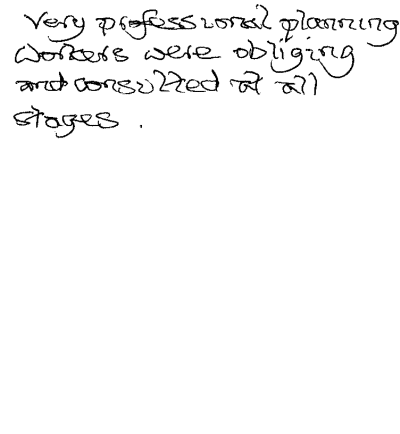 Very professional planning
workers were obliging
and consulted at all
stages .